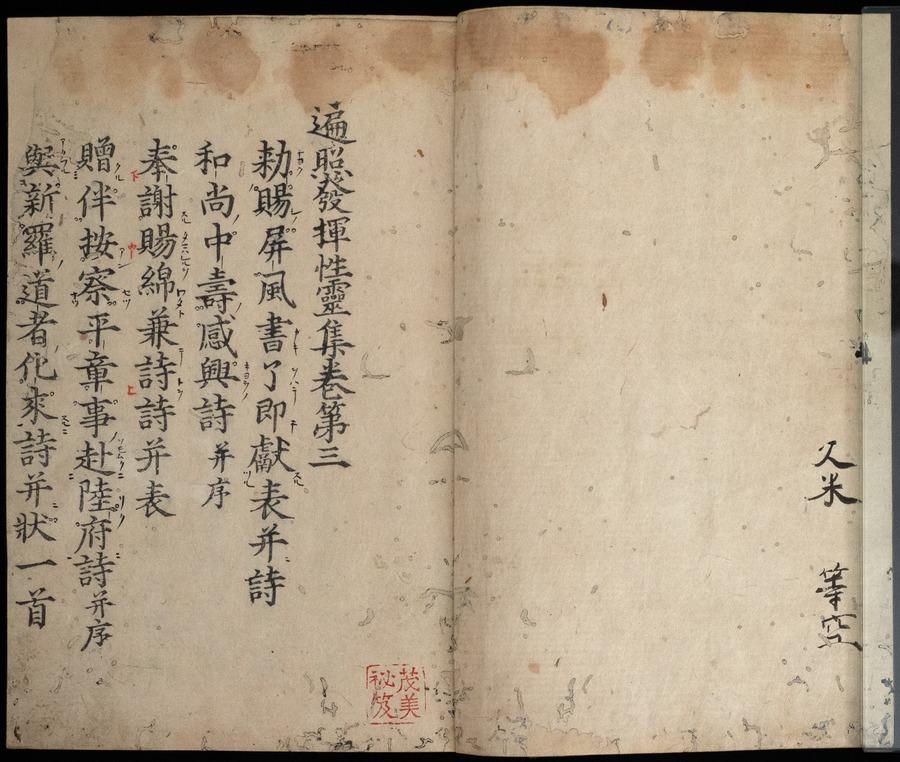 久米
等空
遍照發揮性靈集卷第三
勅賜屏風書了即獻表并詩
和尚中壽感興詩并序
奉謝賜綿兼詩詩并表
贈伴按察平章事赴陸府詩并序
與新羅道者化來詩并狀一首
茂美
祕笈